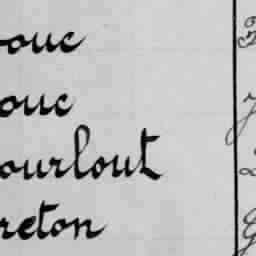 ouc
ouc
ourlout
reton